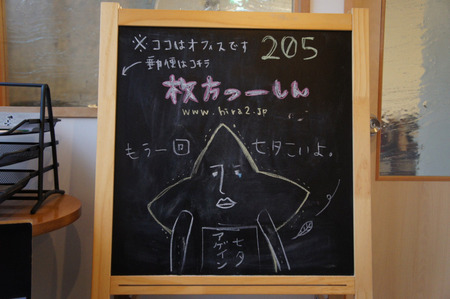 ※ココはオフィスです
205
郵便はコチラ
枚方つーしん
www.hira2.jp
もう一回 七夕こいよ。
七夕
アゲイン